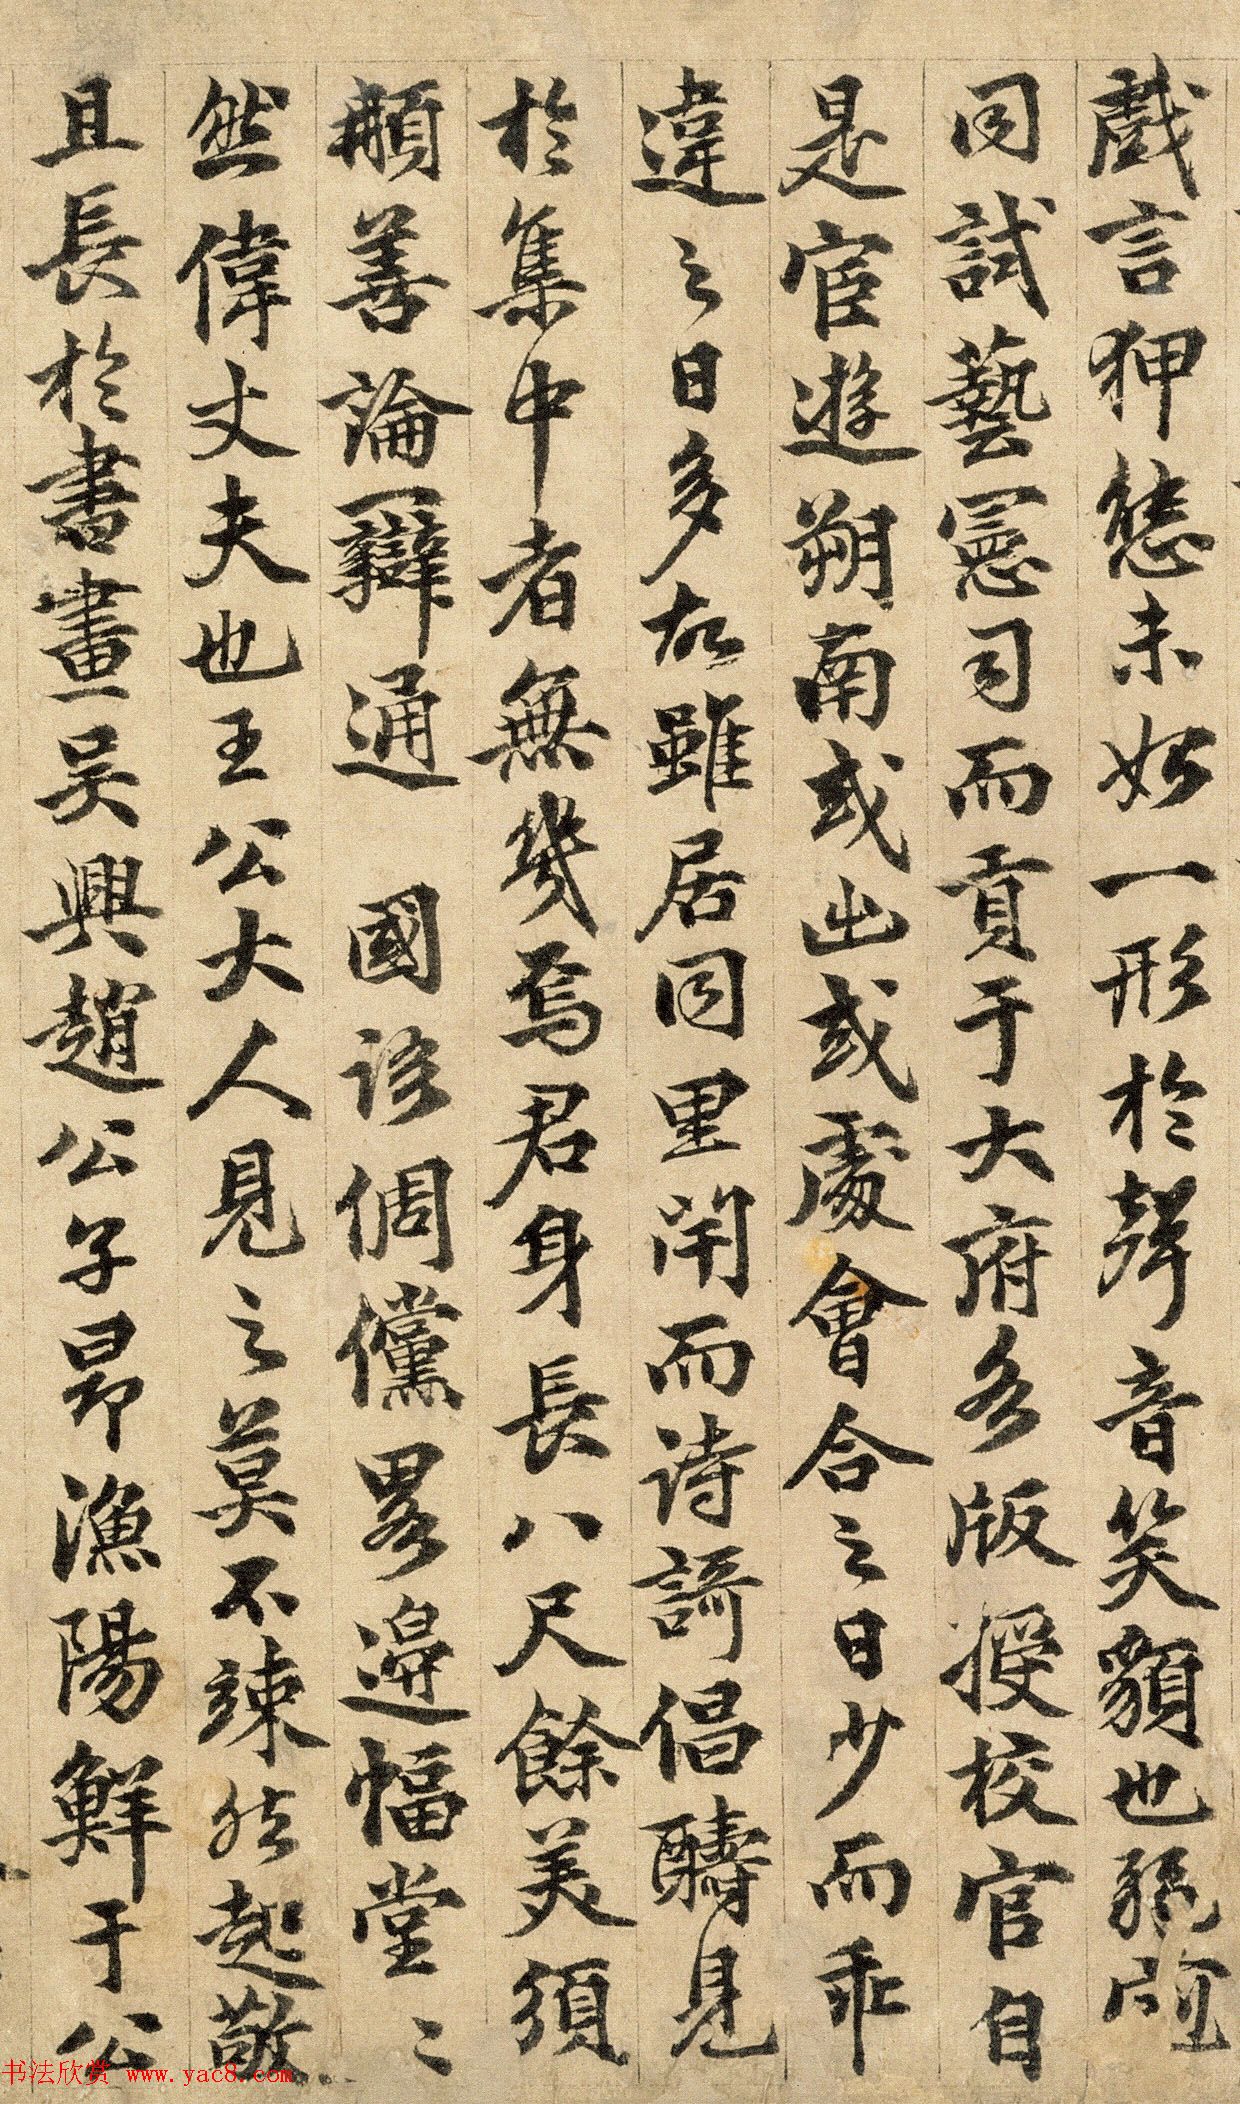 戲言狎態未始一形於聲音笑貌也
同試藝憲司而貢于大府各版授校官自
是宦遊朔南或出或處會合之日少而乖
違之日多故雖居同里閈而詩謌倡醻見
於集中者無幾焉君身長八尺餘美須
髥善論辯通國語倜儻畧邊幅堂〻
然偉丈夫也王公大人見之莫不竦然起敬
且長於書畫吳興趙公子昂漁陽鮮于公
书法欣赏 www.yac8.com